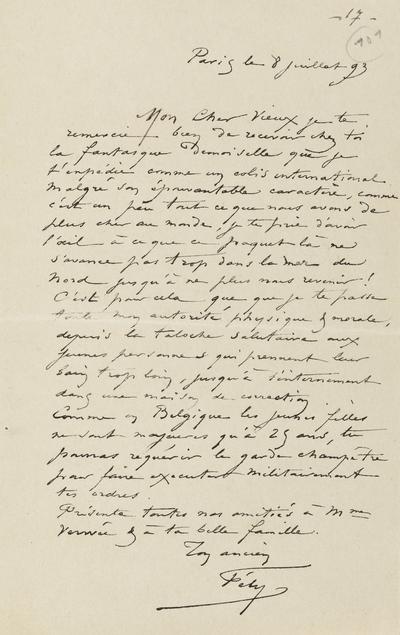 - 17 -
101
Paris le 8 juillet 93
Mon Cher Vieux je te
remercie bien de recevoir chez toi
la fantasque Demoiselle que je
t'expédie comme un colis international.
Malgré son épouvantable caractère, comme
c'est un peu tout ce que nous avons de
plus cher au monde, je te prie d'avoir
l'œil à ce que ce paquet là ne
s'avance pas trop dans la mer du
Nord jusqu'à ne plus nous revenir!
C'est pour cela que que je te passe
toute mon autorité physique & morale,
depuis la taloche salutaire aux
jeunes personnes qui prennent leur
bain trop loin, jusqu'à l'internement
dans une maison de correction.
Comme en Belgique les jeunes filles
ne sont majeures qu'à 25 ans, tu
pourras requérir le garde champêtre
pour faire exécuter militairement
tes ordres.
Présente toutes nos amitiés à Mme
Verwée & à ta belle famille.
Ton ancien
Fély